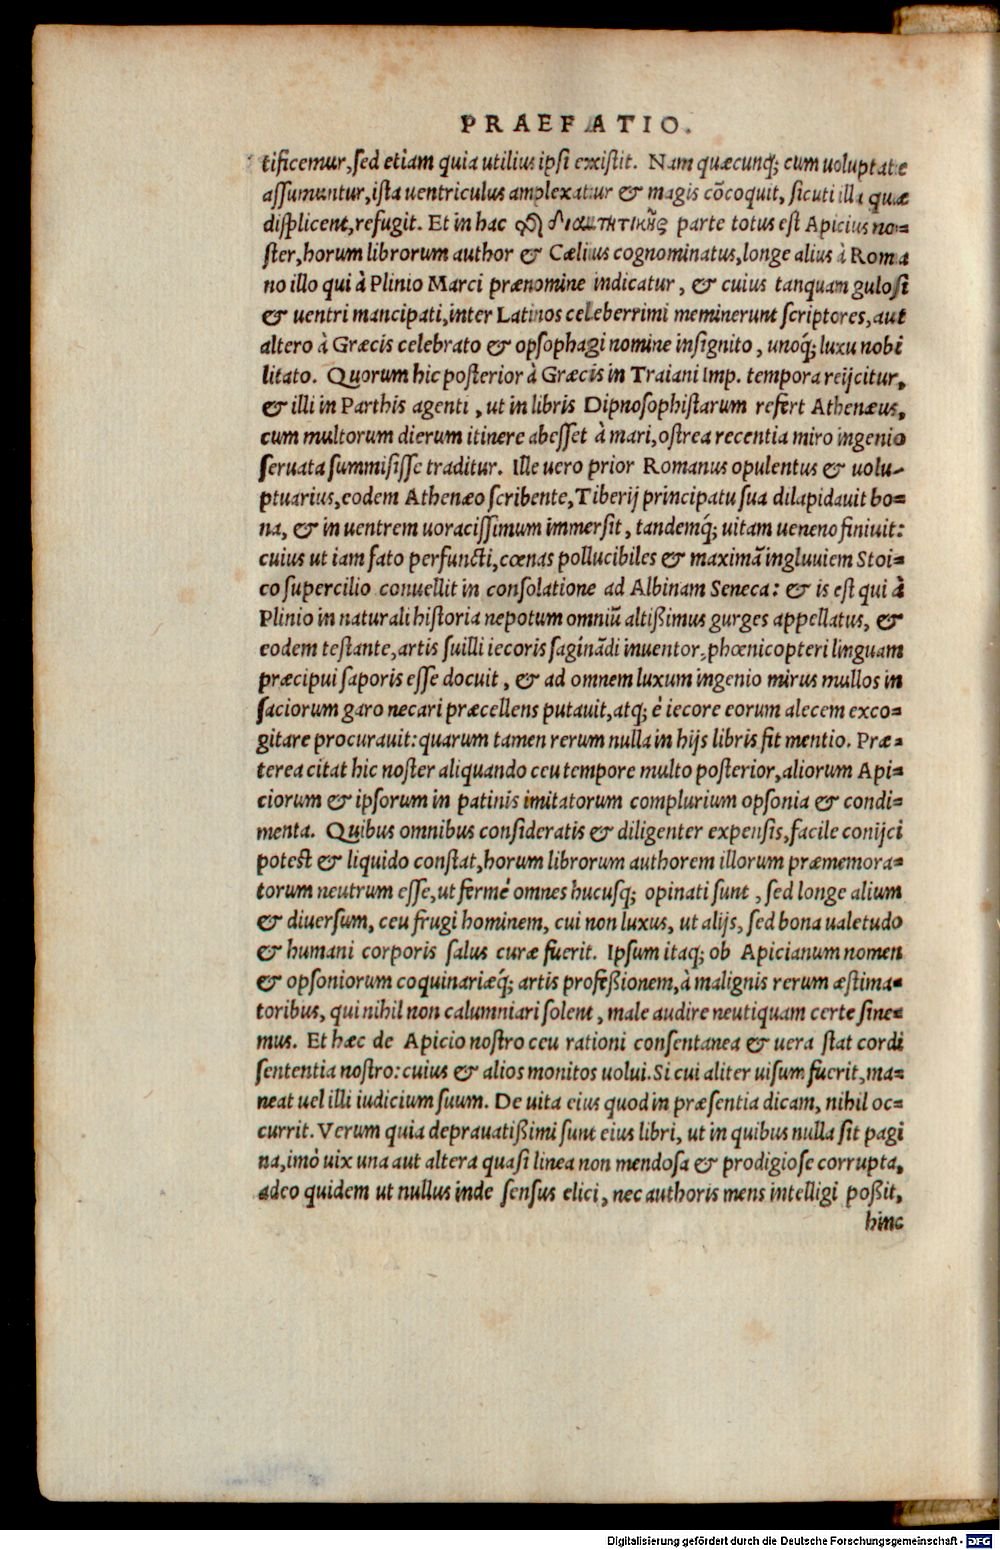 PRAEFATIO.
tificemur, sed etiam quia utilius ipsi existit. Nam quæcunq; cum uoluptate
assumuntur, ista uentriculus amplexatur & magis cōcoquit, sicuti illa quæ
displicent, refugit. Et in hac διαιτητικῆς parte totus est Apicius no=
ster, horum librorum author & Cælius cognominatus, longe alius à Roma
no illo qui à Plinio Marci prænomine indicatur, & cuius tanquam gulosi
& uentri mancipati, inter Latinos celeberrimi meminerunt scriptores, aut
altero à Græcis celebrato & opsophagi nomine insignito, unoq́; luxu nobi
litato. Quorum hic posterior à Græcis in Traiani Imp. tempora reijcitur,
& illi in Parthis agenti, ut in libris Dipnosophistarum refert Athenæus,
cum multorum dierum itinere abesset à mari, ostrea recentia miro ingenio
seruata summisisse traditur. Ille uero prior Romanus opulentus & uolu-
ptuarius, eodem Athenæo scribente, Tiberij principatu sua dilapidauit bo=
na, & in uentrem uoracissimum immersit, tandemq́; uitam ueneno finiuit:
cuius ut iam fato perfuncti, cœnas pollucibiles & maximā ingluuiem Stoi=
co supercilio conuellit in consolatione ad Albinam Seneca: & is est qui à
Plinio in naturali historia nepotum omniū altißimus gurges appellatus, &
eodem testante, artis suilli iecoris sagināndi inuentor, phœnicopteri linguam
præcipui saporis esse docuit, & ad omnem luxum ingenio mirus mullos in
saciorum garo necari præcellens putauit, atq; è iecore eorum alecem exco=
gitare procurauit: quarum tamen rerum nulla in hijs libris fit mentio. Præ=
terea citat hic noster aliquando ceu tempore multo posterior, aliorum Api=
ciorum & ipsorum in patinis imitatorum complurium opsonia & condi=
menta. Quibus omnibus consideratis & diligenter expensis, facile conijci
potest & liquido constat, horum librorum authorem illorum præmemora=
torum neutrum esse, ut fermé omnes hucusq; opinati sunt, sed longe alium
& diuersum, ceu frugi hominem, cui non luxus, ut alijs, sed bona ualetudo
& humani corporis salus curæ fuerit. Ipsum itaq; ob Apicianum nomen
& opsoniorum coquinariæq́; artis profeßionem, à malignis rerum æstima=
toribus, qui nihil non calumniari solent, male audire neutiquam certe sine=
mus. Et hæc de Apicio nostro ceu rationi consentanea & uera stat cordi
sententia nostro: cuius & alios monitos uolui. Si cui aliter uisum fuerit, ma=
neat uel illi iudicium suum. De uita eius quod in præsentia dicam, nihil oc=
currit. Verum quia deprauatißimi sunt eius libri, ut in quibus nulla sit pagi
na, imò uix una aut altera quasi linea non mendosa & prodigiose corrupta,
adeo quidem ut nullus inde sensus elici, nec authoris mens intelligi poßit,
hinc
Digitalisierung gefördert durch die Deutsche Forschungsgemeinschaft - DFG